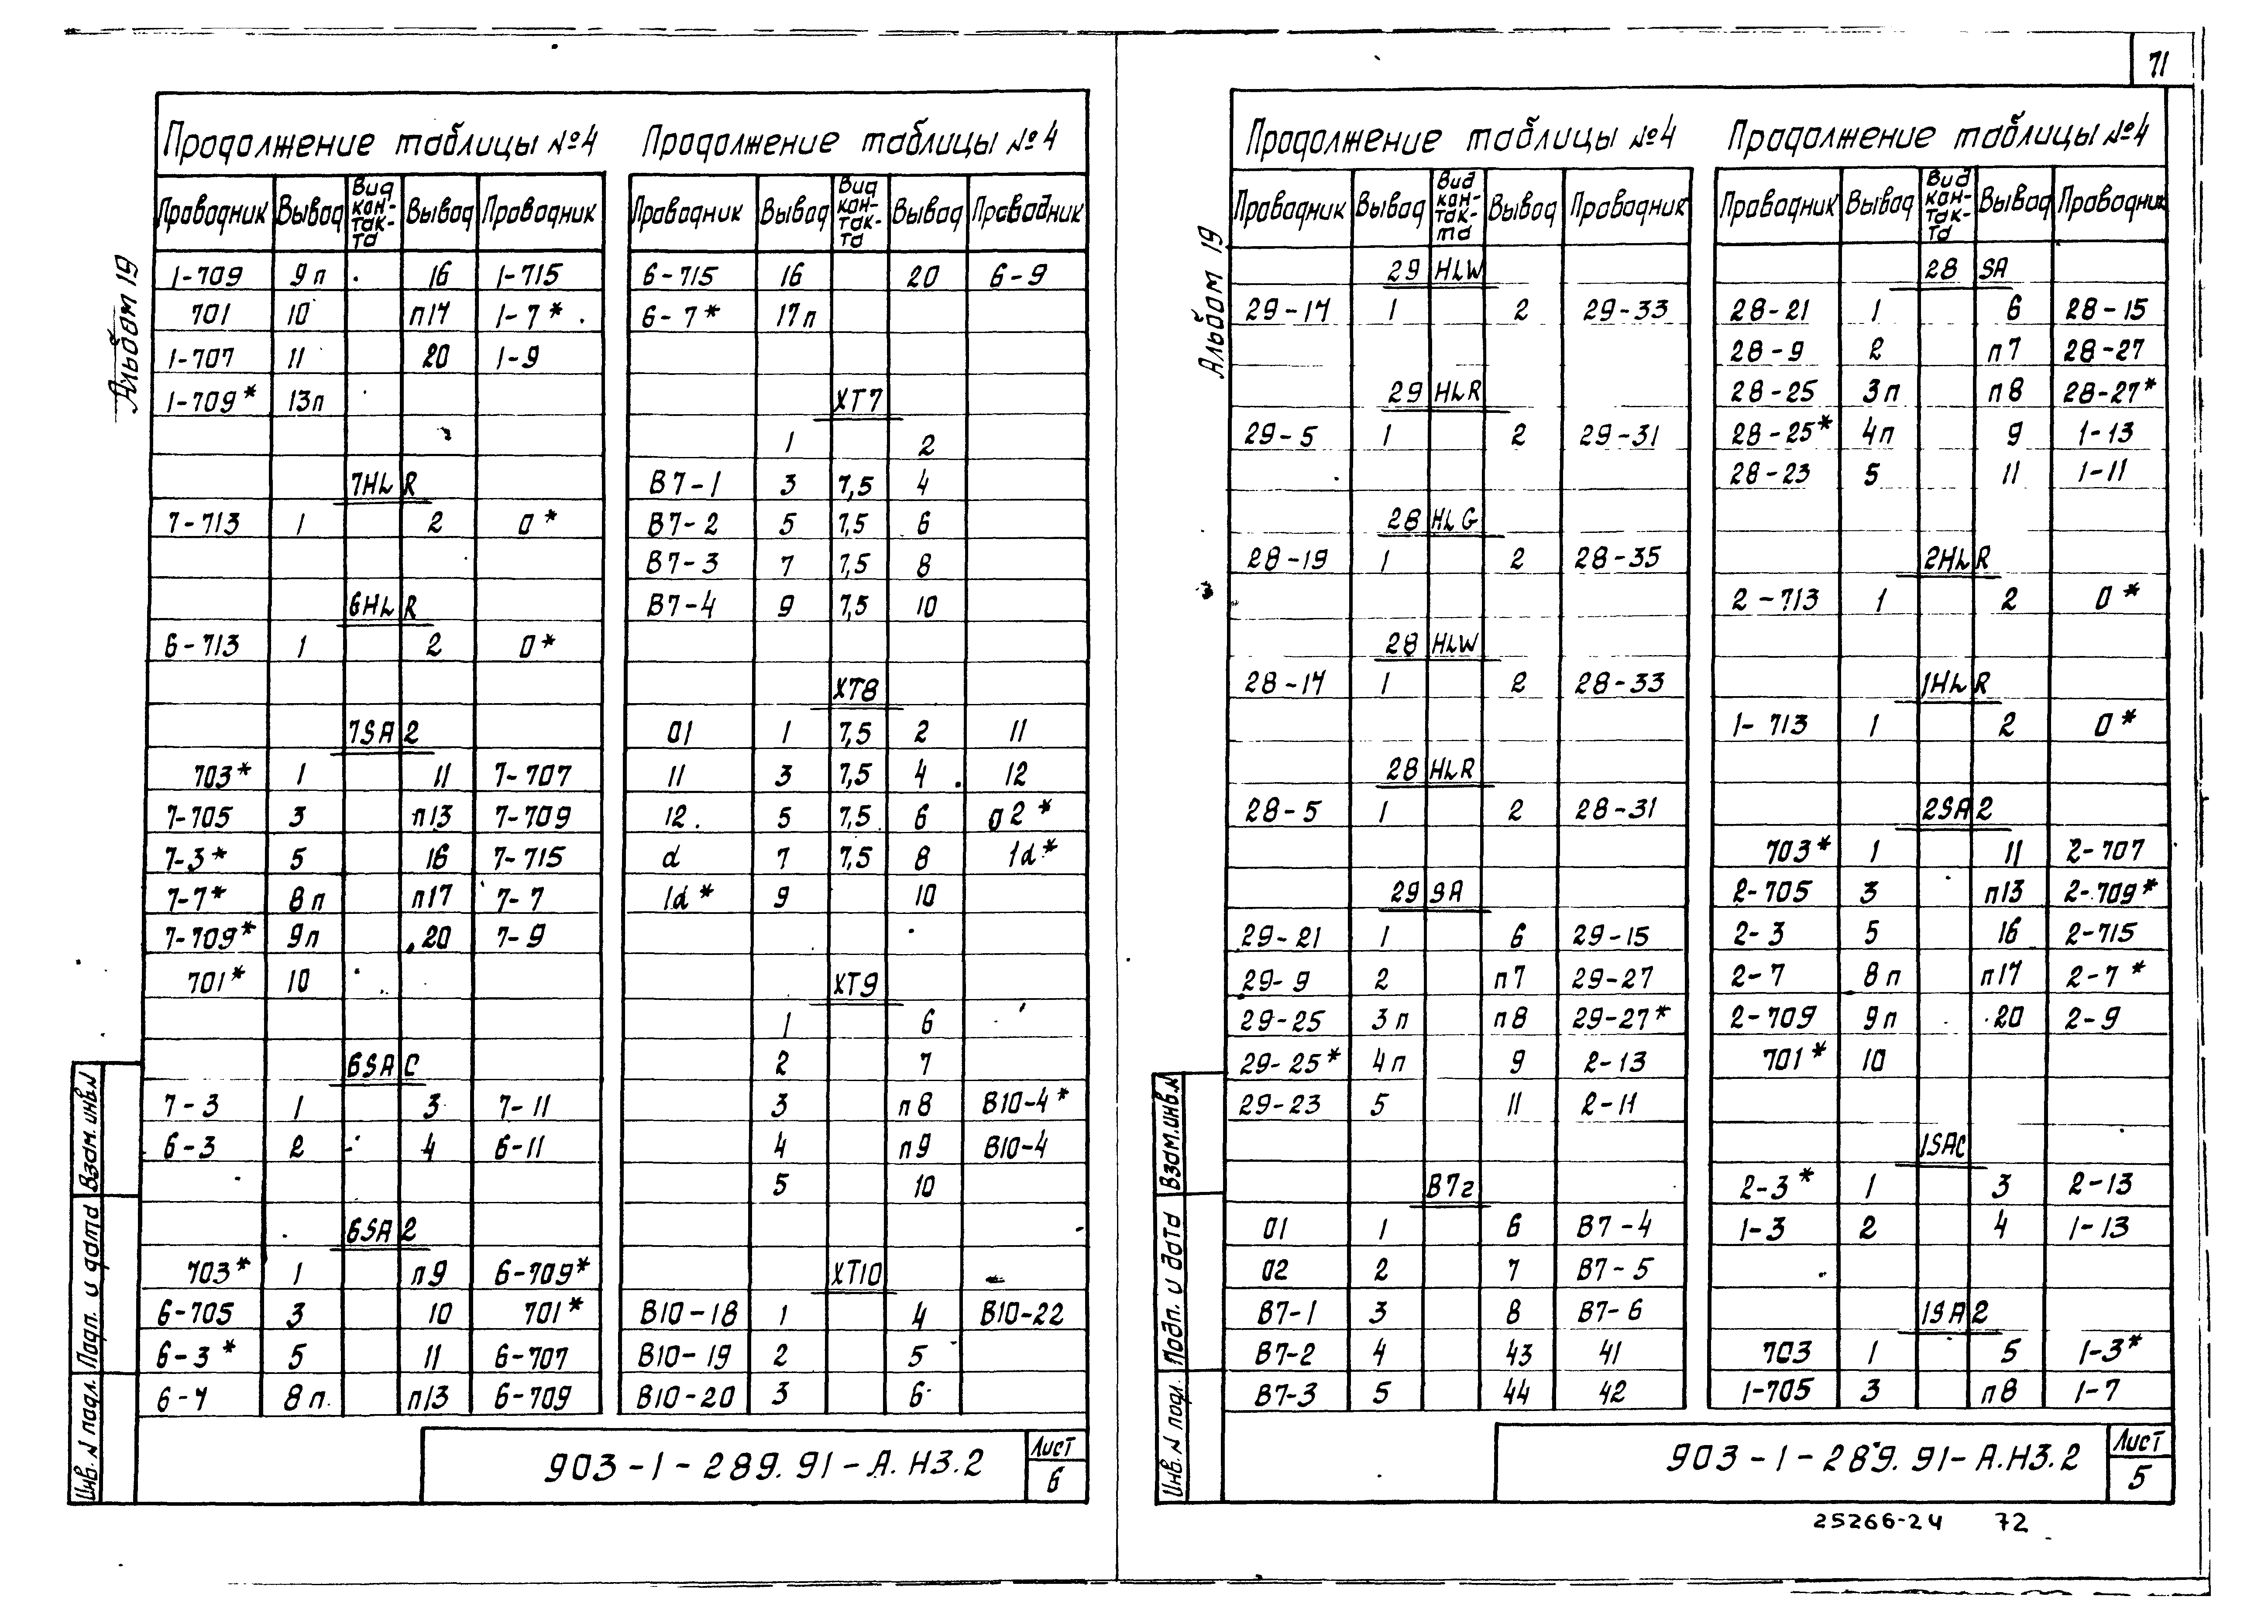 71
Альбом 19
Продолжение таблицы №4
Проводник Вывод Вид кон-так-та Вывод Проводник
1-709 9п 16 1-715
701 10 п17 1-7*
1-707 11 20 1-9
1-709* 13п
7HLR
7-713 1 2 0*
6HLR
6-713 1 2 0*
7SA2
703* 1 11 7-707
7-705 3 п13 7-709
7-3* 5 16 7-715
7-7* 8п п17 7-7
7-709* 9п 20 7-9
701* 10
6SAC
7-3 1 3 7-11
6-3 2 4 6-11
6SA2
703* 1 п9 6-709*
6-705 3 10 701*
6-3* 5 11 6-707
6-7 8п п13 6-709
Продолжение таблицы №4
Проводник Вывод Вид кон-так-та Вывод Проводник
6-715 16 20 6-9
6-7* 17п
XT7
1 2
В7-1 3 7,5 4
В7-2 5 7,5 6
В7-3 7 7,5 8
В7-4 9 7,5 10
XT8
01 1 7,5 2 11
11 3 7,5 4 12
12 5 7,5 6 02*
d 7 7,5 8 1d*
1d* 9 10
XT9
1 6
2 7
3 п8 В10-4*
4 п9 В10-4
5 10
XT10
В10-18 1 4 В10-22
В10-19 2 5
В10-20 3 6
Инв. N подл. Подп. и дата Взам.инв.N
903-1-289.91-А.НЗ.2
Лист
6
Альбом 19
Продолжение таблицы №4
Проводник Вывод Вид кон-так-та Вывод Проводник
29 HLW
29-17 1 2 29-33
29 HLR
29-5 1 2 29-31
28 HLG
28-19 1 2 28-35
28 HLW
28-17 1 2 28-33
28 HLR
28-5 1 2 28-31
29 SA
29-21 1 6 29-15
29-9 2 п7 29-27
29-25 3п п8 29-27*
29-25* 4п 9 2-13
29-23 5 11 2-11
В7г
01 1 6 В7-4
02 2 7 В7-5
В7-1 3 8 В7-6
В7-2 4 43 41
В7-3 5 44 42
Продолжение таблицы №4
Проводник Вывод Вид кон-так-та Вывод Проводник
28 SA
28-21 1 6 28-15
28-9 2 п7 28-27
28-25 3п п8 28-27*
28-25* 4п 9 1-13
28-23 5 11 1-11
2HLR
2-713 1 2 0*
1HLR
1-713 1 2 0*
2SA2
703* 1 11 2-707
2-705 3 п13 2-709*
2-3 5 16 2-715
2-7 8п п17 2-7*
2-709 9п 20 2-9
701* 10
1SAC
2-3* 1 3 2-13
1-3 2 4 1-13
1SA2
703 1 5 1-3*
1-705 3 п8 1-7
Инв. N подл. Подп. и дата Взам.инв.N
903-1-289.91-А.НЗ.2
Лист
5
25266-24 72